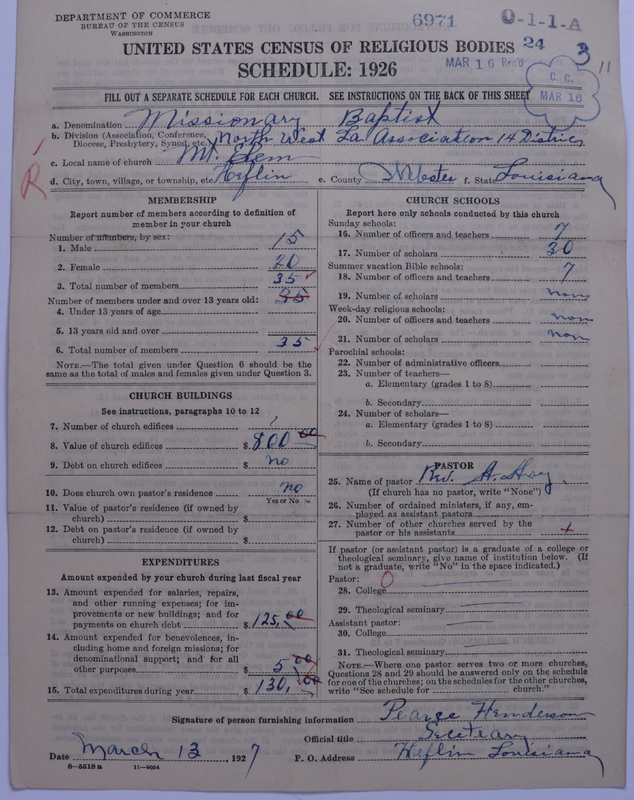 DEPARTMENT OF COMMERCE
BUREAU OF THE CENSUS
WASHINGTON
6971
O-1-1-A
UNITED STATES CENSUS OF RELIGIOUS BODIES
24
3
11
MAR 16 Rec'd
SCHEDULE: 1926
C. C.
MAR 16
FILL OUT A SEPARATE SCHEDULE FOR EACH CHURCH. SEE INSTRUCTIONS ON THE BACK OF THIS SHEET
a. Denomination Missionary Baptist
b. Division (Association, Conference, Diocese, Presbytery, Synod, etc.) North West La Association 14 District
c. Local name of church Mt.
R
d. City, town, village, or township, etc. Heflin e. County Webster f. State Louisiana
MEMBERSHIP
Report number of members according to definition of
member in your church
Number of members, by sex:
1. Male 15
2. Female 20
3. Total number of members 35
Number of members under and over 13 years old: 35
4. Under 13 years of age
5. 13 years old and over
6. Total number of members 35
NOTE.—The total given under Question 6 should be the
same as the total of males and females given under Question 3.
CHURCH BUILDINGS
See instructions, paragraphs 10 to 12
7. Number of church edifices 1
8. Value of church edifices $ 800 00
9. Debt on church edifices $ no
10. Does church own pastor's residence no
Yes or No
11. Value of pastor's residence (if owned by
church) $
12. Debt on pastor's residence (if owned by
church) $
EXPENDITURES
Amount expended by your church during last fiscal year
13. Amount expended for salaries, repairs,
and other running expenses; for im-
provements or new buildings; and for
payments on church debt $ 125,00
14. Amount expended for benevolences, in-
cluding home and foreign missions; for
denominational support; and for all
other purposes $ 5 00
15. Total expenditures during year $ 130,00
CHURCH SCHOOLS
Report here only schools conducted by this church
Sunday schools:
16. Number of officers and teachers 7
17. Number of scholars 30
Summer vacation Bible schools:
18. Number of officers and teachers 7
19. Number of scholars non
Week-day religious schools:
20. Number of officers and teachers non
21. Number of scholars non
Parochial schools:
22. Number of administrative officers
23. Number of teachers—
a. Elementary (grades 1 to 8)
b. Secondary
24. Number of scholars—
a. Elementary (grades 1 to 8)
b. Secondary
PASTOR
25. Name of pastor Rev. A.
(If church has no pastor, write "None")
26. Number of ordained ministers, if any, em-
ployed as assistant pastors
27. Number of other churches served by the
pastor or his assistants
If pastor (or assistant pastor) is a graduate of a college or
theological seminary, give name of institution below. (If
not a graduate, write "No" in the space indicated.)
Pastor:
28. College 0
29. Theological seminary
Assistant pastor:
30. College
31. Theological seminary
NOTE.—Where one pastor serves two or more churches,
Questions 28 and 29 should be answered only on the schedule
for one of the churches; on the schedules for the other churches,
write "See schedule for church."
Signature of person furnishing information Pearce Henderson
Official title Seceteary
Date March 13, 1927 P. O. Address Heflin Louisiana
8-5518 a 11-9054